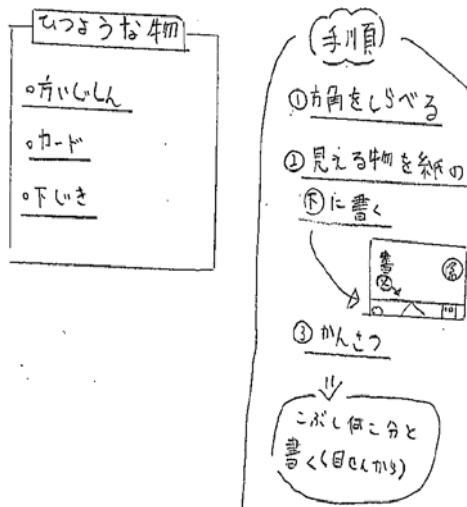 ひつような物
○方いじしん
○カード
○下じき
手順
①方角をしらべる
②見える物を紙の
下に書く
③かんさつ
こぶし何こ分と
書く(目せんから)